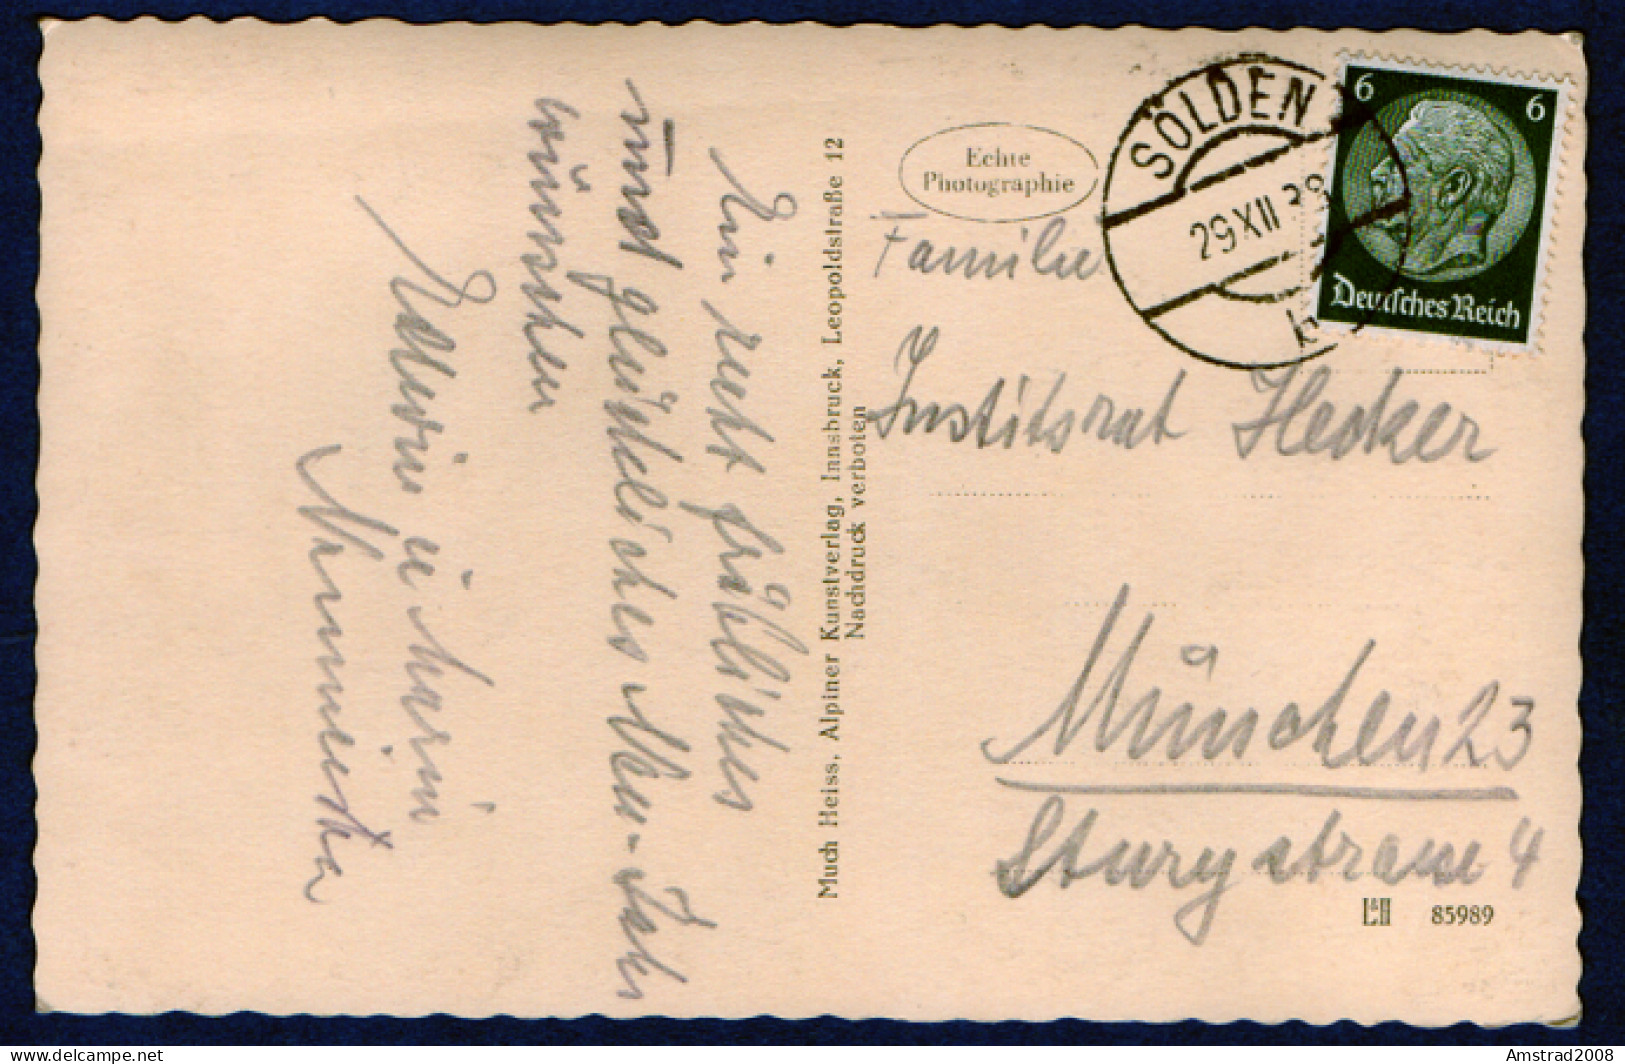 Ein recht fröhliches
und glückliches Neu-Jahr
wünschen
Edwin u. Karin
Much Heiss, Alpiner Kunstverlag, Innsbruck, Leopoldstraße 12
Nachdruck verboten
Echte
Photographie
SÖLDEN
29 XII 38
6 6
Deutsches Reich
Familie
Justitsrat Hecker
München 23
4
L&H 85989
delcampe.net
Amstrad2008